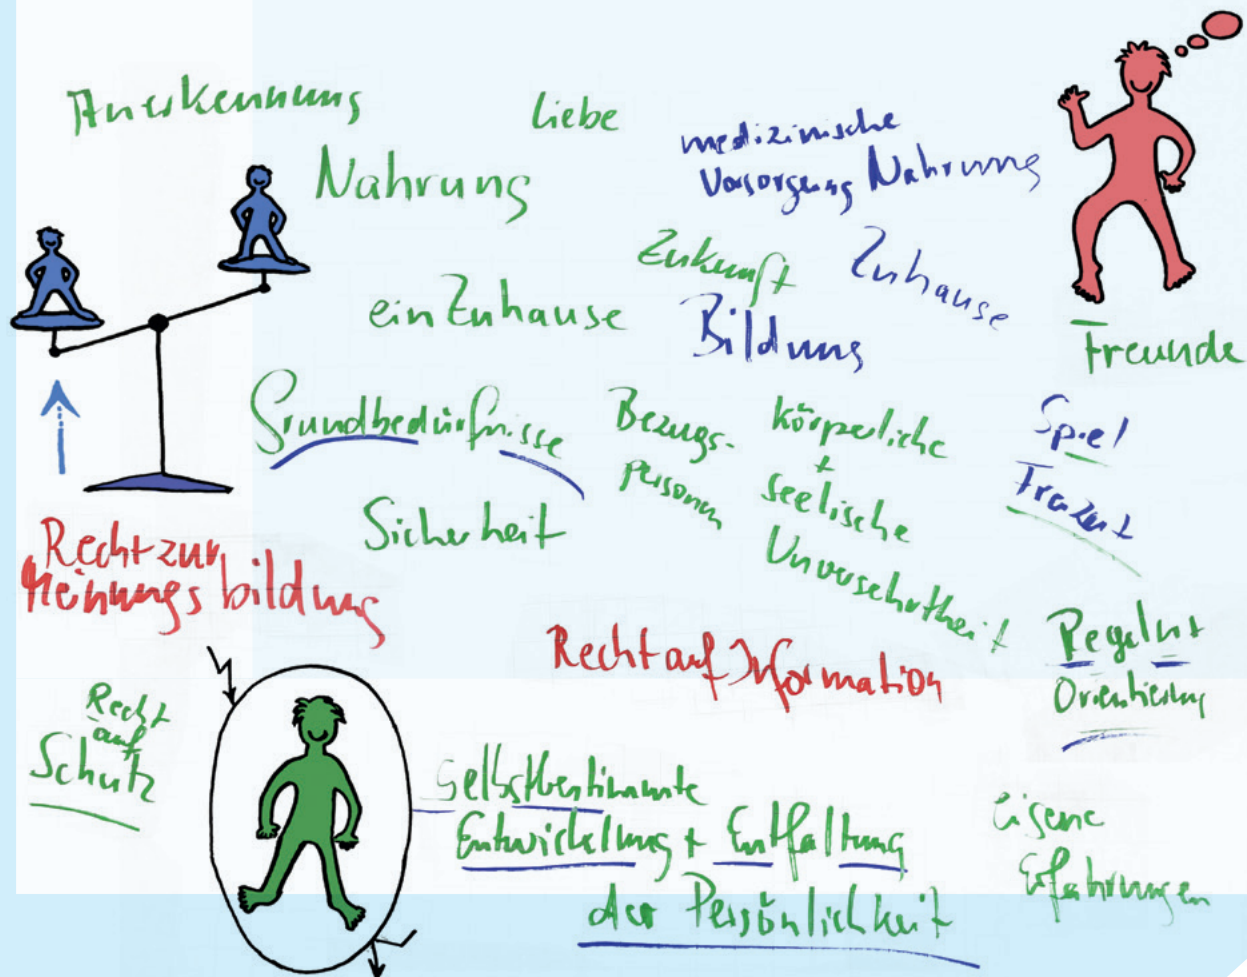 Anerkennung
Liebe
medizinische
Versorgung Nahrung
Nahrung
Zukunft
Zuhause
ein Zuhause
Bildung
Freunde
Grundbedürfnisse
Bezugs-
personen
körperliche
+
seelische
Unversehrtheit
Spiel
Freizeit
Sicherheit
Recht zur
Meinungsbildung
Recht auf Information
Regeln +
Orientierung
Recht
auf
Schutz
Selbstbestimmte
Entwicklung + Entfaltung
der Persönlichkeit
eigene
Erfahrungen